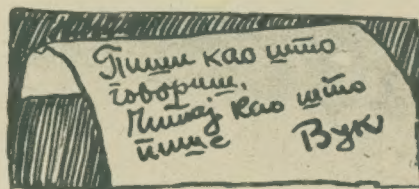 Пиши као што
говориш.
Читај као што
пише Вук